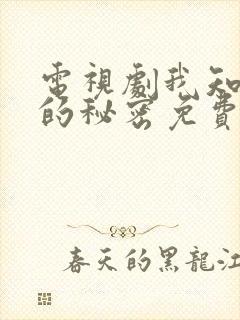 電視劇我知
的秘密免費
春天的黑龍江